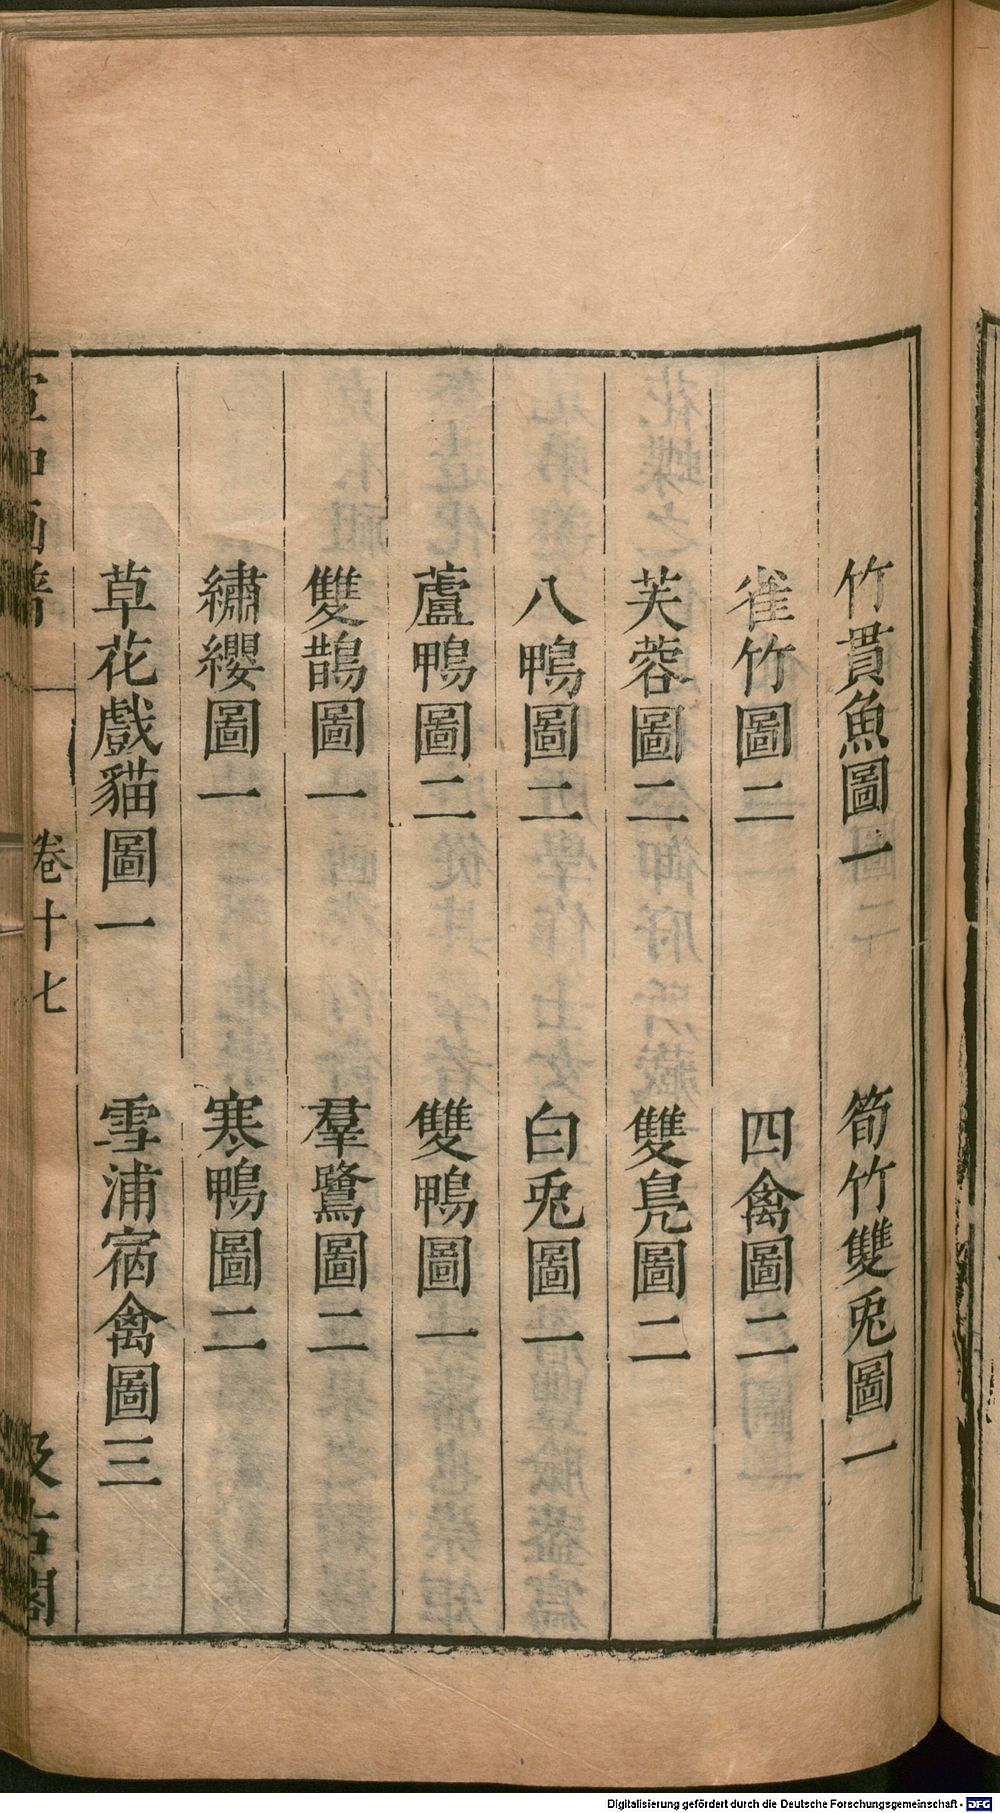 竹貫魚圖一　筍竹雙兎圖一
雀竹圖二　四禽圖二
芙蓉圖二　雙鳧圖二
八鴨圖二　白兎圖一
蘆鴨圖二　雙鴨圖一
雙鵲圖一　羣鷺圖二
繡纓圖一　寒鴨圖二
草花戲貓圖一　雪浦宿禽圖三
宣和画譜　卷十七　汲古閣
Digitalisierung gefördert durch die Deutsche Forschungsgemeinschaft - DFG